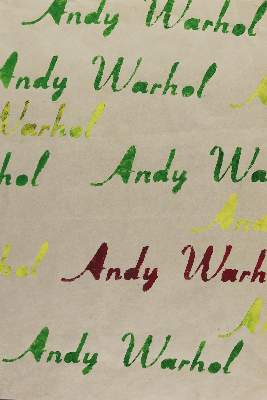 Andy Warhol
Andy Warhol
A
Warhol
hol Andy Wa
And
hol Andy Warh
A
Andy Warhol